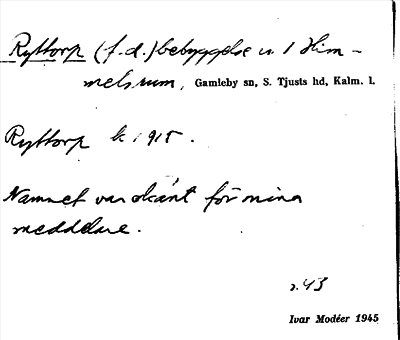 Ryttorp (f.d.) bebyggelse u. / Him-
melsrum, Gamleby sn, S. Tjusts hd, Kalm. l.
Ryttorp k 1915.
Namnet var okänt för mina
meddelare.
s. 43
Ivar Modéer 1945